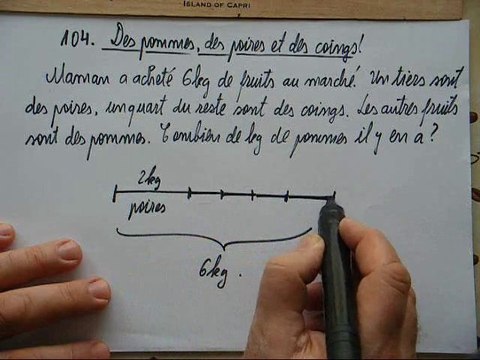 ISLAND OF CAPRI
104. Des pommes, des poires et des coings!
Maman a acheté 6kg de fruits au marché. Un tiers sont
des poires, un quart du reste sont des coings. Les autres fruits
sont des pommes. Combien de kg de pommes il y en a?
2kg
poires
6kg.